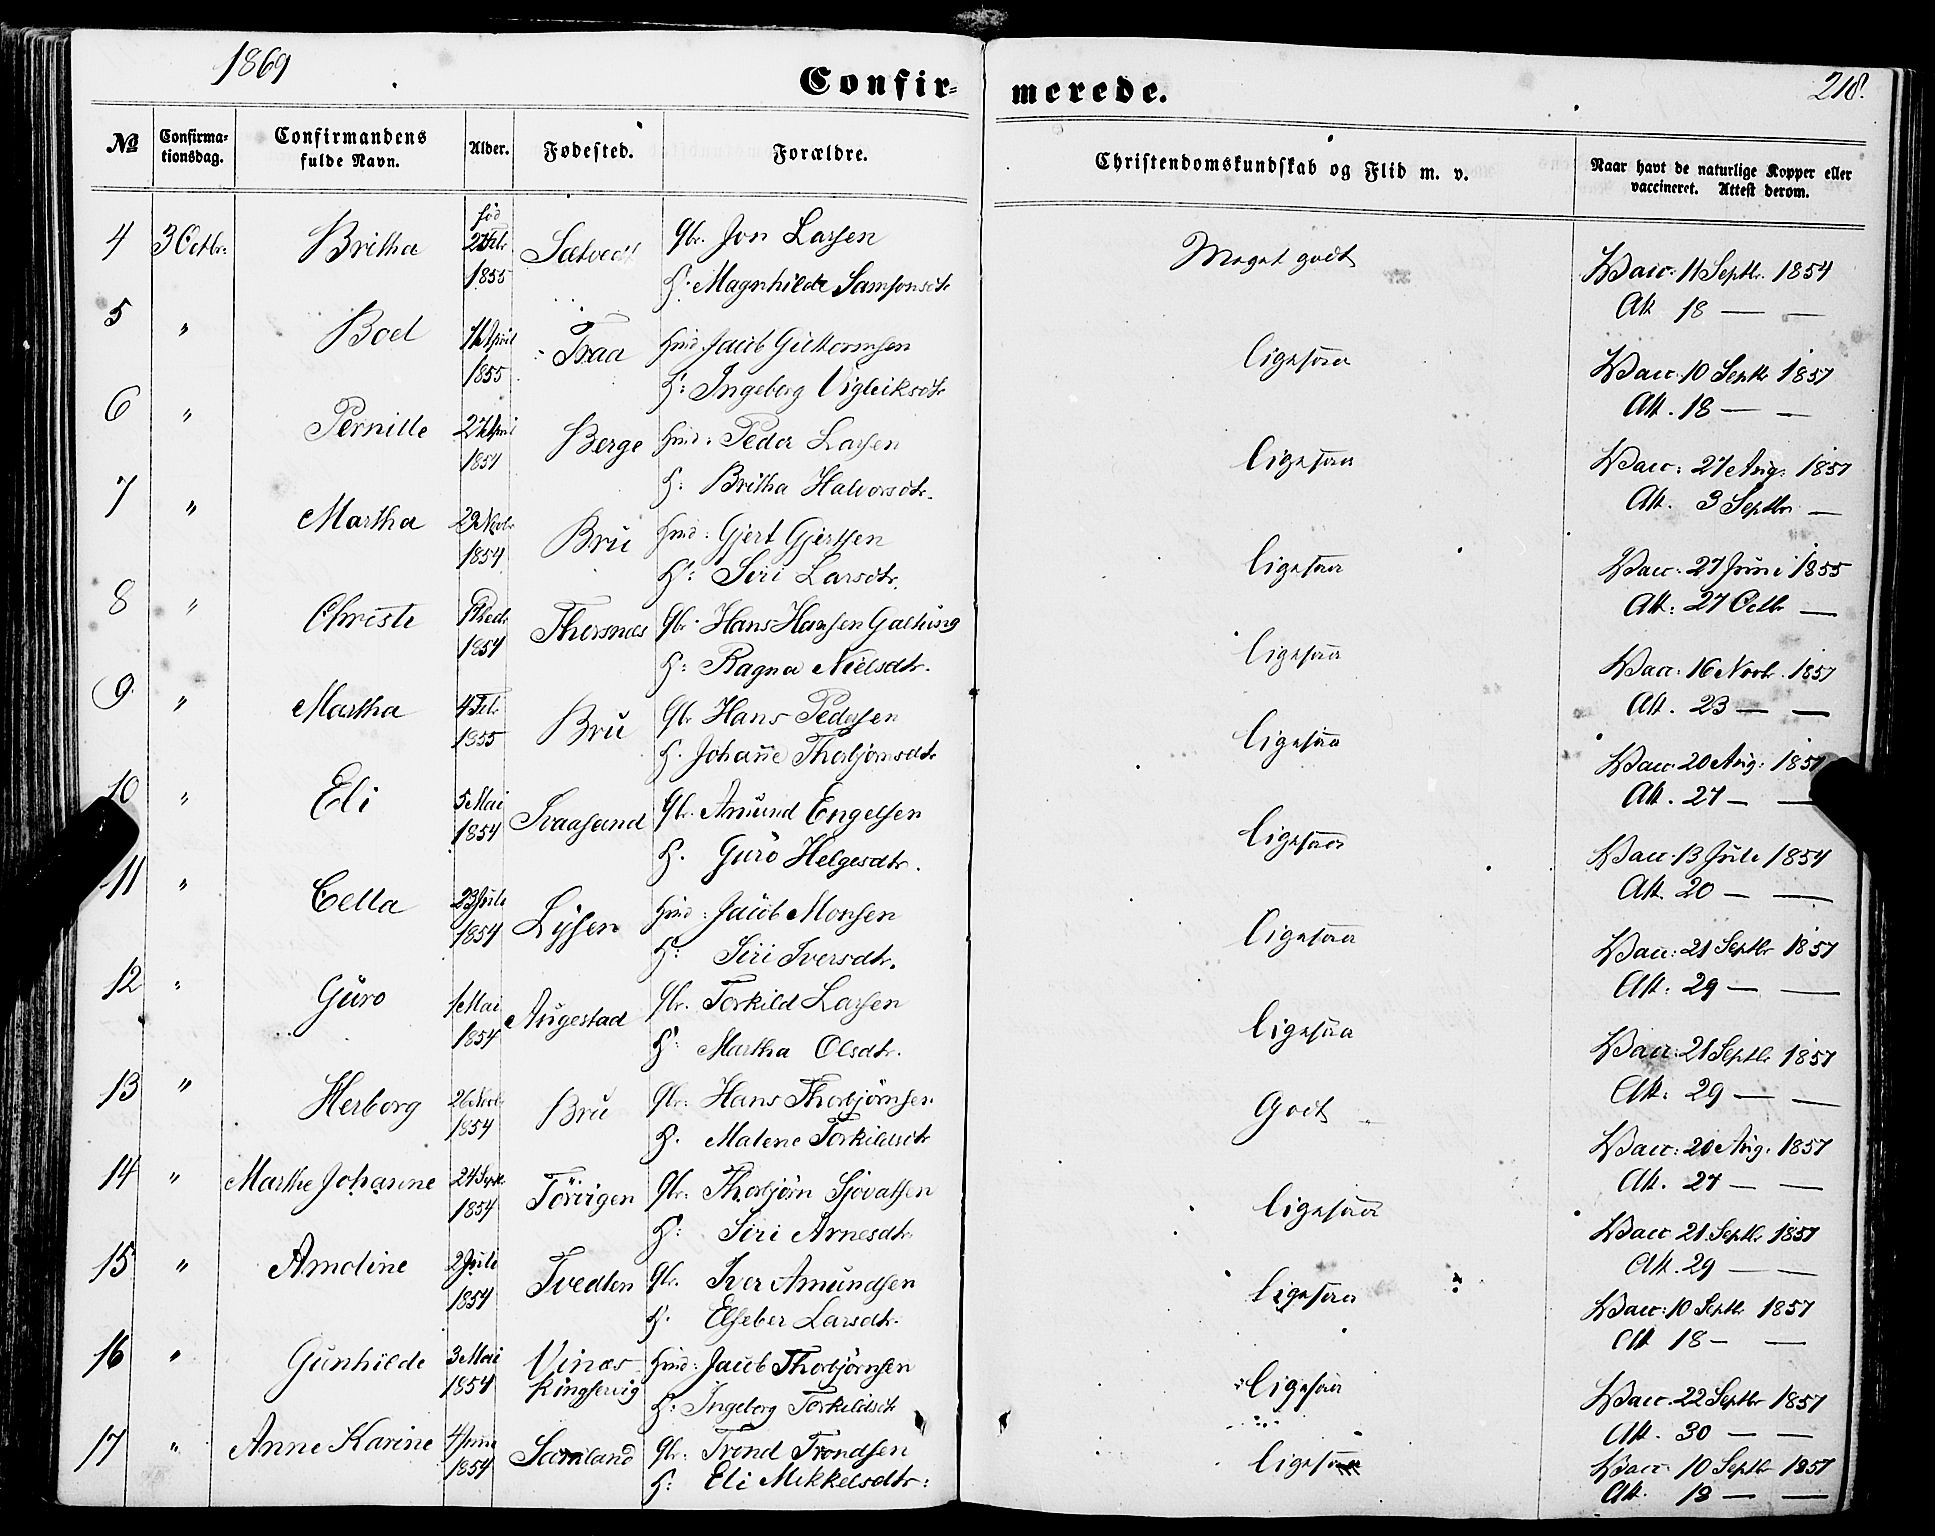 1869
Confir-
merede.
218.
№ Confirma-tionsdag. Confirmandens fulde Navn. Alder. Fødested. Forældre. Christendomskundskab og Flid m. v. Naar havt de naturlige Kopper eller vaccineret. Attest derom.
4 3 Octbr: Britha født 1855 Sætvedt Gbr. Jon Larsen Meget godt Vacc: 11 Septbr. 1854
H: Magnhilde Samsonsdtr Att 18 — —
5 " Boel April 1855 Traa Hmd: Jacob Guttormsen Ligesaa Vacc: 10 Septbr 1857
H: Ingeborg Vigleiksdtr Att. 18 — —
6 " Pernille 27 April 1854 Berge Hmd: Peder Larsen Ligesaa Vacc: 27 Aug: 1857
H: Britha Halvorsdtr. Att. 3 Septbr —
7 " Martha 29 Novbr 1854 Bru Hmd: Gjert Gjertsen Ligesaa Vacc: 27 Juni 1855
H: Siri Larsdtr. Att: 27 Octbr —
8 " Christe 1854 Thorsnæs Gbr: Hans Hansen Galtung Ligesaa Vacc: 16 Novbr. 1857
H: Ragna Nielsdtr. Att. 23 — —
9 " Martha 4 Febr 1855 Bru Gbr Hans Pedersen Ligesaa Vacc: 20 Aug: 1857
H. Johanne Thorbjørnsdtr Att. 27 — —
10 " Eli 5 Mai 1854 Svaasand Gbr. Amund Engelsen Ligesaa Vacc: 13 Juli 1854
H. Guro Helgesdtr. Att. 20 — —
11 " Cella 23 Juli 1854 Lysen Hmd: Jacob Monsen Ligesaa Vacc: 21 Septbr 1857
H: Siri Iversdtr. Att: 29 — —
12 " Guro 1 Mai 1854 Augestad Gbr. Torkild Larsen Ligesaa Vacc: 21 Septbr 1857
H: Martha Olsdtr. Att: 29 — —
13 " Herborg 26 Novbr 1854 Bru Gbr: Hans Thorbjørnsen Godt Vacc: 20 Aug. 1857
H. Malene Torkildsdtr Att. 27 — —
14 " Marthe Johanne 24 Septbr 1854 Törvigen Gbr: Thorbjørn Sjovatsen Ligesaa Vacc: 21 Septbr. 1857
H: Siri Arnesdtr. Att. 29 — —
15 " Amoline 2 Juli 1854 Tvedten Gbr. Iver Amundsen Ligesaa Vacc: 10 Septbr 1857
H. Elseber Larsdtr. Att 18 — —
16 " Gunhilde 3 Mai 1854 Vinæs Kingservig Hmd: Jacob Thorbjørnsen Ligesaa Vacc. 22 Septbr 1857
H: Ingeborg Torkildsdtr Att. 30 — —
17 " Anne Karine 4 Juni 1854 Samland Gbr. Trond Trondsen Ligesaa Vacc: 10 Septbr 1857
H: Eli Mikkelsdtr: Att. 18 — —